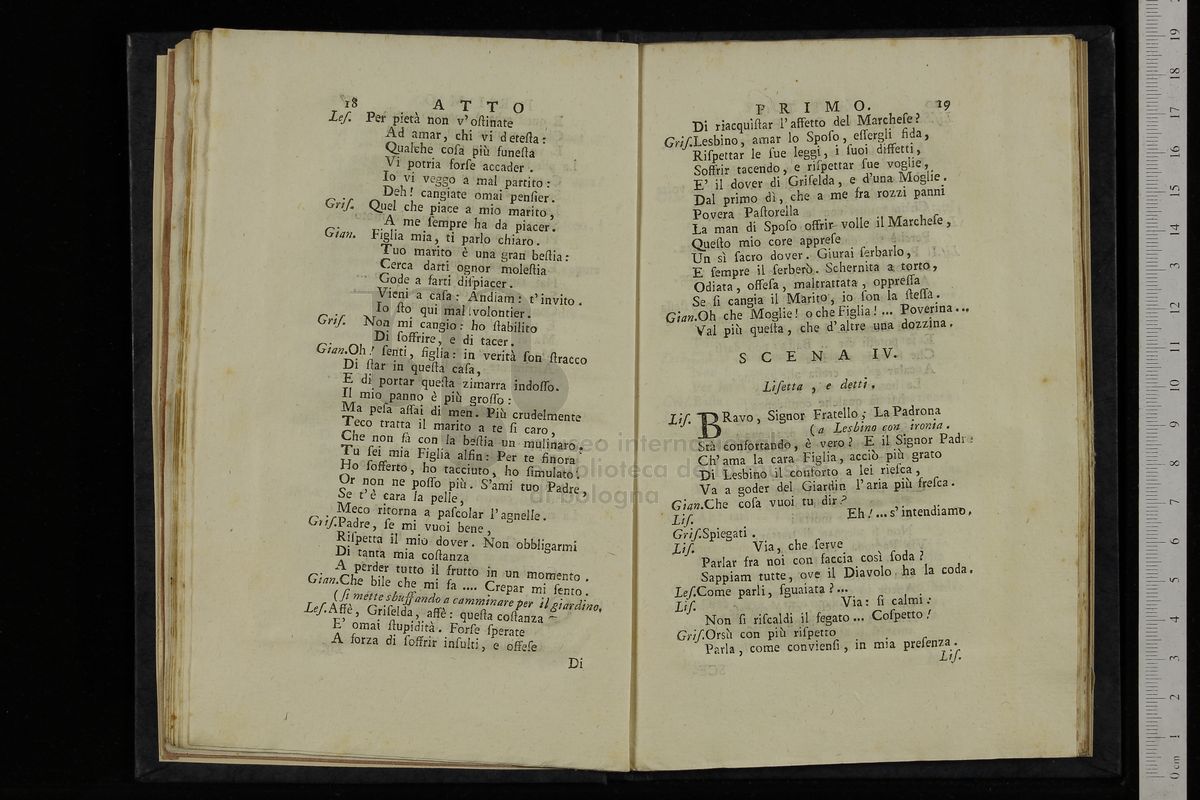 18 ATTO
Leſ. Per pietà non v'oſtinate
Ad amar, chi vi deteſta:
Qualche coſa più funeſta
Vi potria forſe accader.
Io vi veggo a mal partito:
Deh! cangiate omai penſier.
Griſ. Quel che piace a mio marito,
A me ſempre ha da piacer.
Gian. Figlia mia, ti parlo chiaro.
Tuo marito è una gran beſtia:
Cerca darti ognor moleſtia
Gode a farti diſpiacer.
Vieni a caſa: Andiam: t'invito.
Io ſto qui mal volontier.
Griſ. Non mi cangio: ho ſtabilito
Di ſoffrire, e di tacer.
Gian.Oh! ſenti, figlia: in verità ſon ſtracco
Di ſtar in queſta caſa,
E di portar queſta zimarra indoſſo.
Il mio panno è più groſſo:
Ma peſa aſſai di men. Più crudelmente
Teco tratta il marito a te ſi caro,
Che non fà con la beſtia un mulinaro.
Tu ſei mia Figlia alfin: Per te finora
Ho ſofferto, ho tacciuto, ho ſimulato:
Or non ne poſſo più. S'ami tuo Padre,
Se t'è cara la pelle,
Meco ritorna a paſcolar l'agnelle.
Griſ.Padre, ſe mi vuoi bene,
Riſpetta il mio dover. Non obbligarmi
Di tanta mia coſtanza
A perder tutto il frutto in un momento.
Gian.Che bile che mi fa .... Crepar mi ſento.
(ſi mette sbuffando a camminare per il giardino.
Leſ.Affè, Griſelda, affè: queſta coſtanza
E' omai ſtupidità. Forſe ſperate
A forza di ſoffrir inſulti, e offeſe
Di
PRIMO. 19
Di riacquiſtar l'affetto del Marcheſe?
Griſ.Lesbino, amar lo Spoſo, eſſergli fida,
Riſpettar le ſue leggi, i ſuoi diffetti,
Soffrir tacendo, e riſpettar ſue voglie,
E' il dover di Griſelda, e d'una Moglie.
Dal primo dì, che a me fra rozzi panni
Povera Paſtorella
La man di Spoſo offrir volle il Marcheſe,
Queſto mio core appreſe
Un sì ſacro dover. Giurai ſerbarlo,
E ſempre il ſerberò. Schernita a torto,
Odiata, offeſa, maltrattata, oppreſſa
Se ſi cangia il Marito, io ſon la ſteſſa.
Gian.Oh che Moglie! o che Figlia! ... Poverina...
Val più queſta, che d'altre una dozzina.
SCENA IV.
Liſetta, e detti.
Liſ. BRavo, Signor Fratello; La Padrona
(a Lesbino con ironia.
Stà confortando, è vero? E il Signor Padre
Ch'ama la cara Figlia, acciò più grato
Di Lesbino il conforto a lei rieſca,
Va a goder del Giardin l'aria più freſca.
Gian.Che coſa vuoi tu dir?
Liſ. Eh!... s'intendiamo.
Griſ.Spiegati.
Liſ. Via, che ſerve
Parlar fra noi con faccia così ſoda?
Sappiam tutte, ove il Diavolo ha la coda.
Leſ.Come parli, ſguaiata?...
Liſ. Via: ſi calmi:
Non ſi riſcaldi il fegato... Coſpetto!
Griſ.Orsù con più riſpetto
Parla, come convienſi, in mia preſenza.
Liſ.